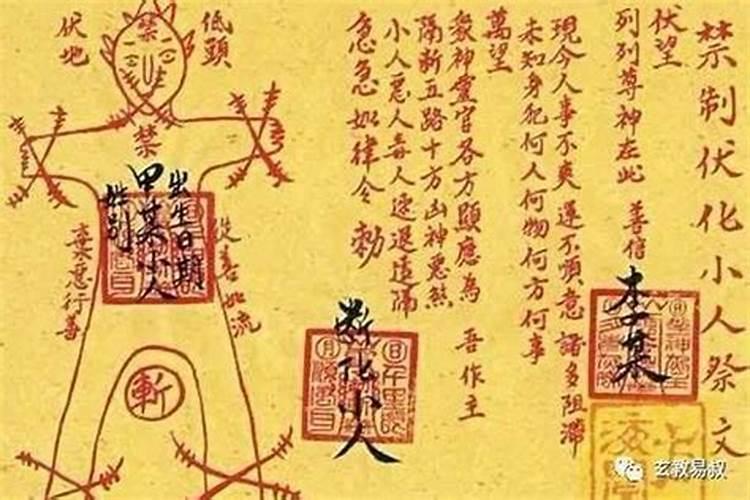 禁制伏化小人祭文
伏望
列列尊神在此 善信 李某
現今人事不爽 運不順意 諸多阻滯
未知身犯何人何物何方何事
萬望
眾神靈官各方顯應為 吾作主
隔断五路十方凶神惡煞
小人惡人毒人速退遠隔
急急如律令 勅
断化小人
低頭
伏地
禁
禁
出生日期
甲某小人
姓別
從善如流
棄惡行善
斬
玄教易叔